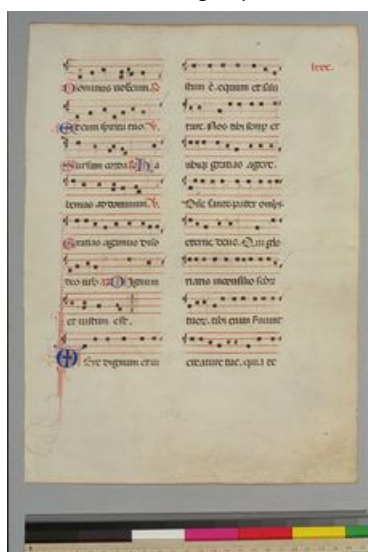 Dominus uobiscum. R
Et cum spiritu tuo. V.
Sursum corda. R Ha
bemus ad dominum. V.
Gratias agamus dño
deo nrō. R Dignum
et iustum est.
Uere dignum et iu
stum ē. equum et salu
tare. Nos tibi semp et
ubiq; gratias agere.
Dñe sancte pater omps
eterne deus. Qui glo
riaris in consilio scōꝝ
tuoꝝ. tibi enim seruiunt
creature tue. quia te
lxxx.